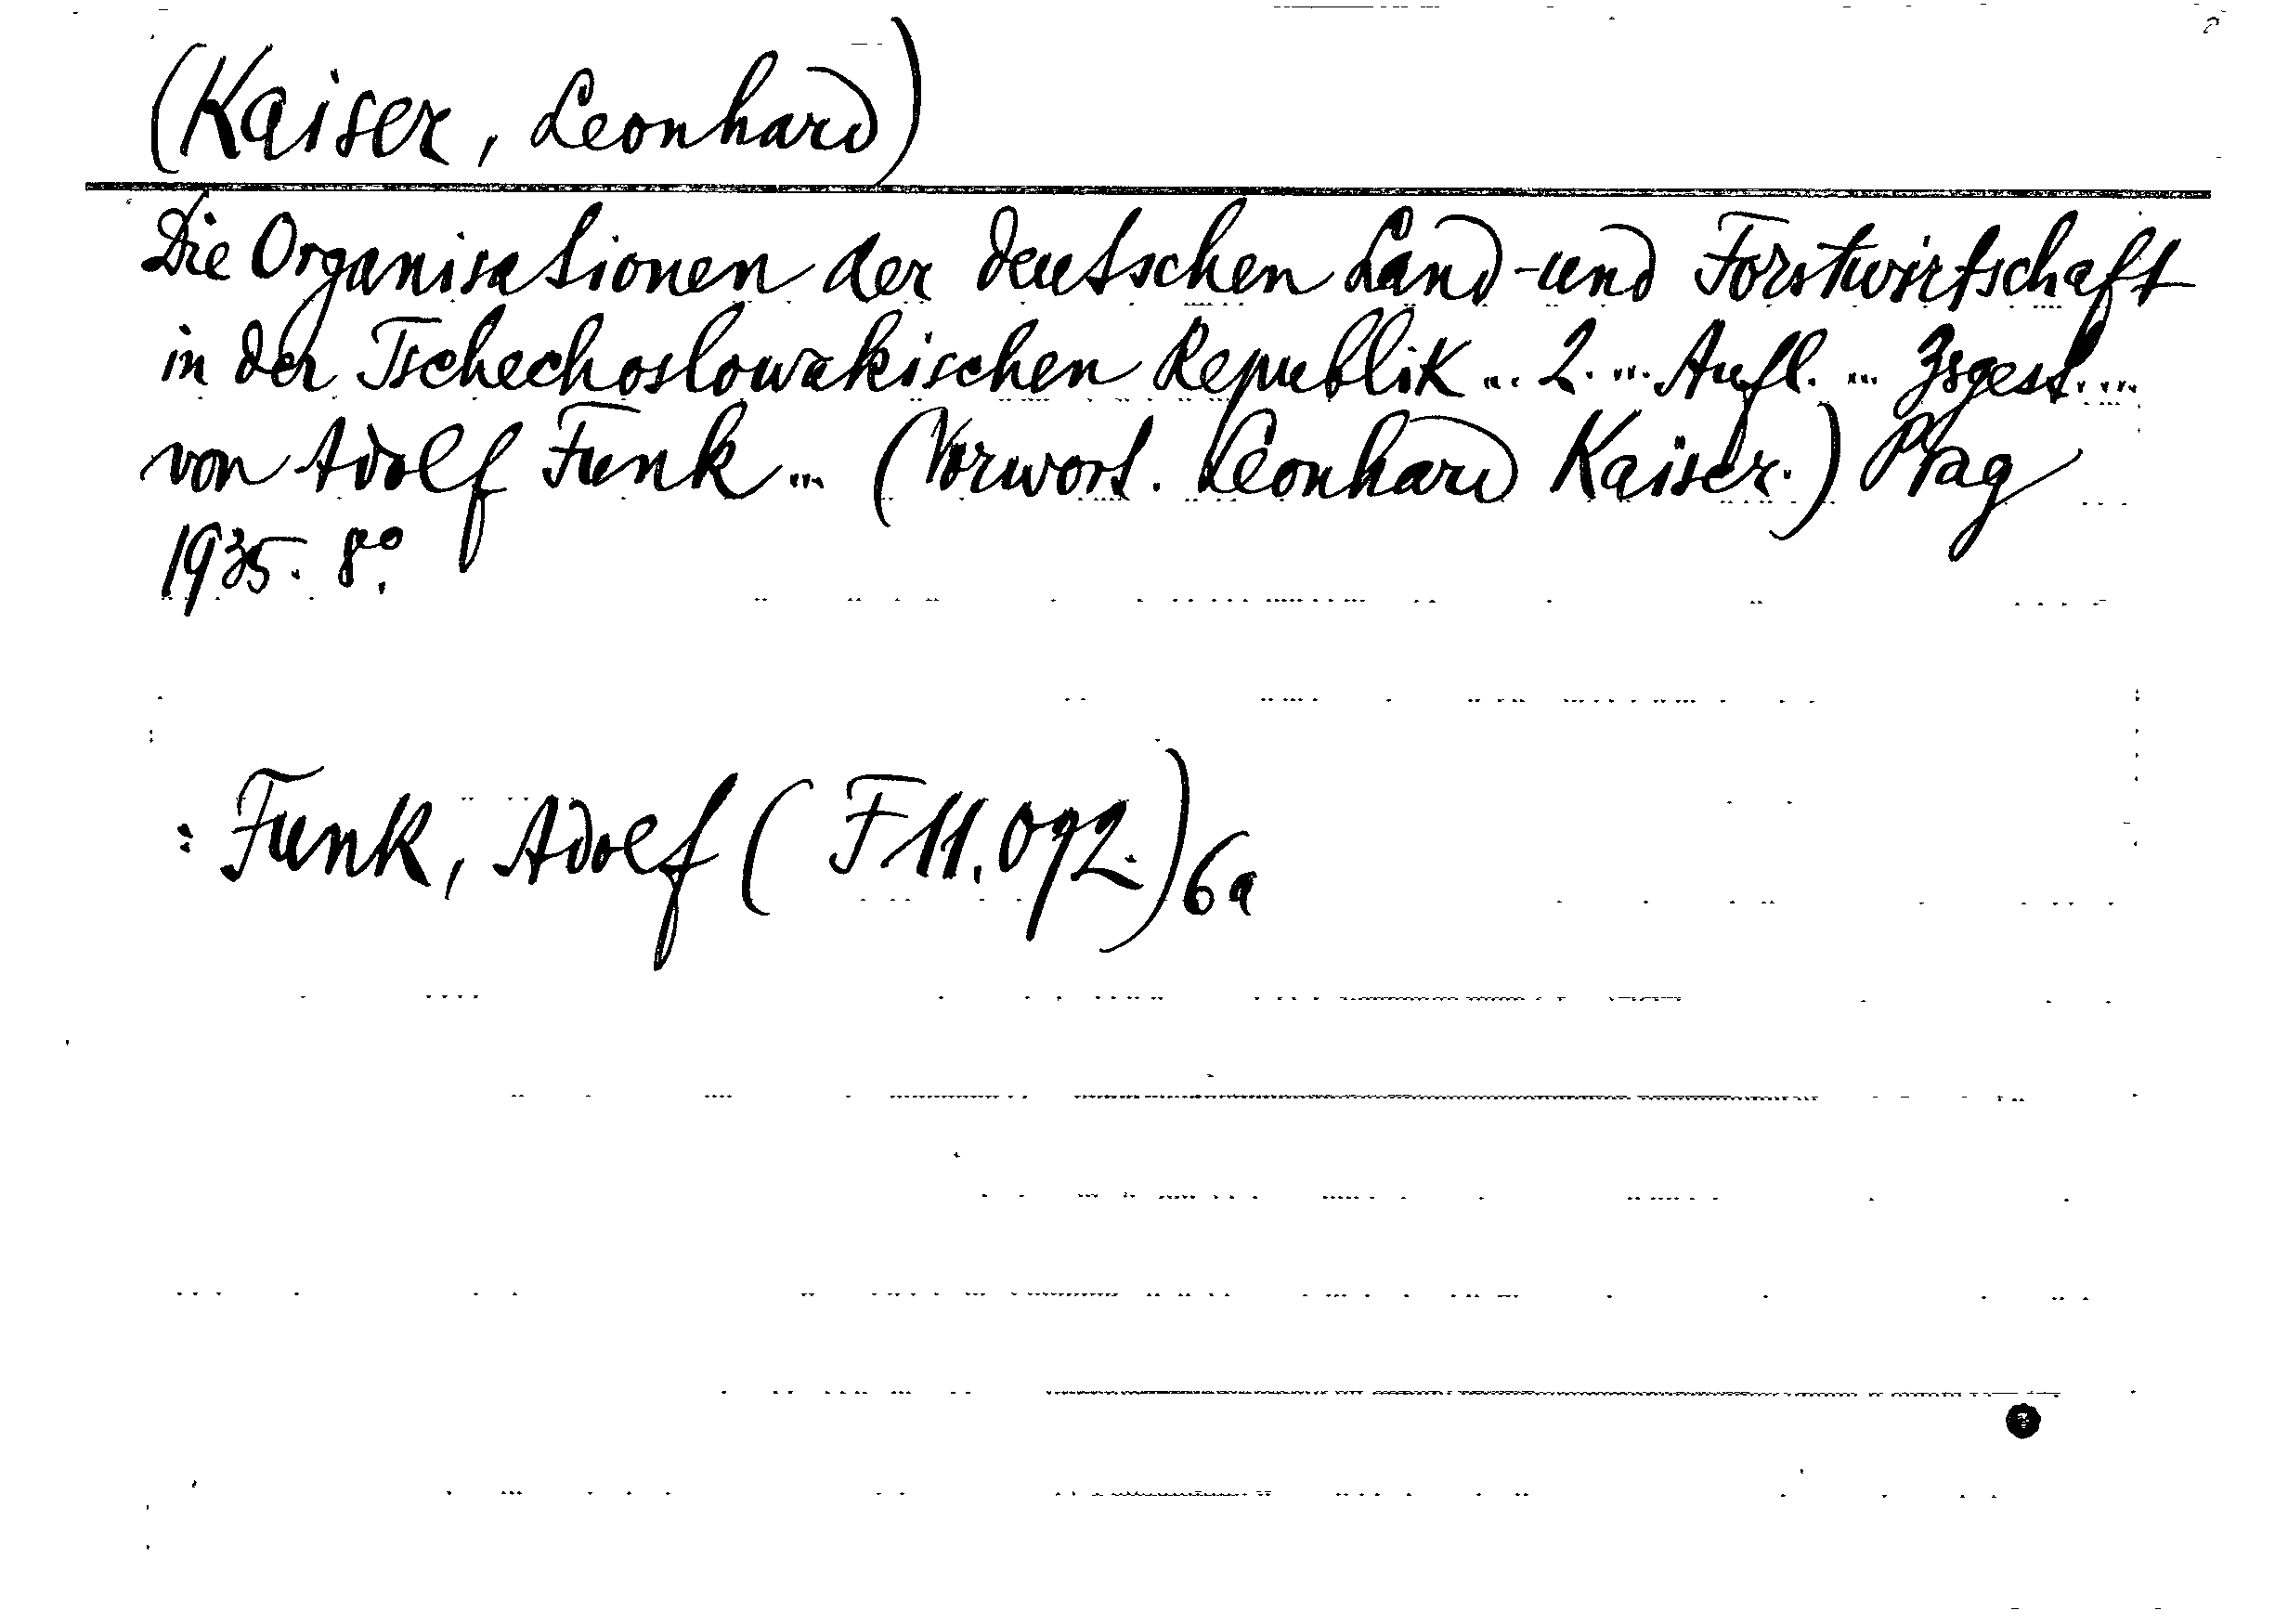 (Kaiser, Leonhard)
Die Organisationen der deutschen Land- und Forstwirtschaft
in der Tschechoslowakischen Republik ... 2. ... Aufl. ... Zsgest. ...
von Adolf Funk ... (Vorwort. Leonhard Kaiser.) Prag
1935. 8°.
: Funk, Adolf (F 11.092.) 6a